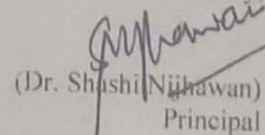 (Dr. Shashi Nijhawan)
Principal